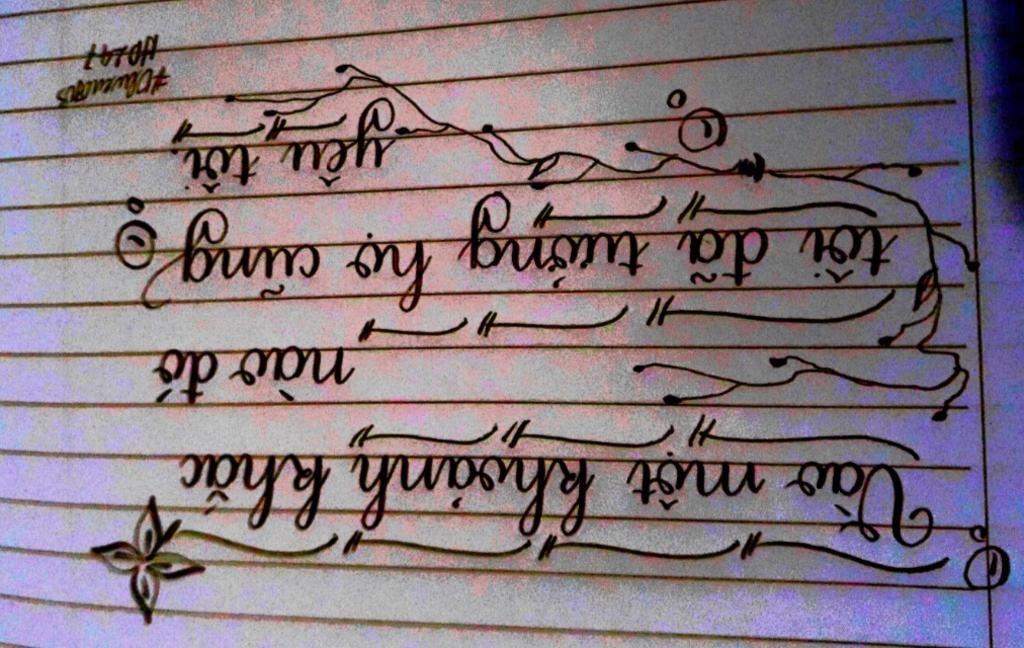 Vào một khoảnh khắc
nào đó
tôi đã tưởng họ cũng
yêu tôi